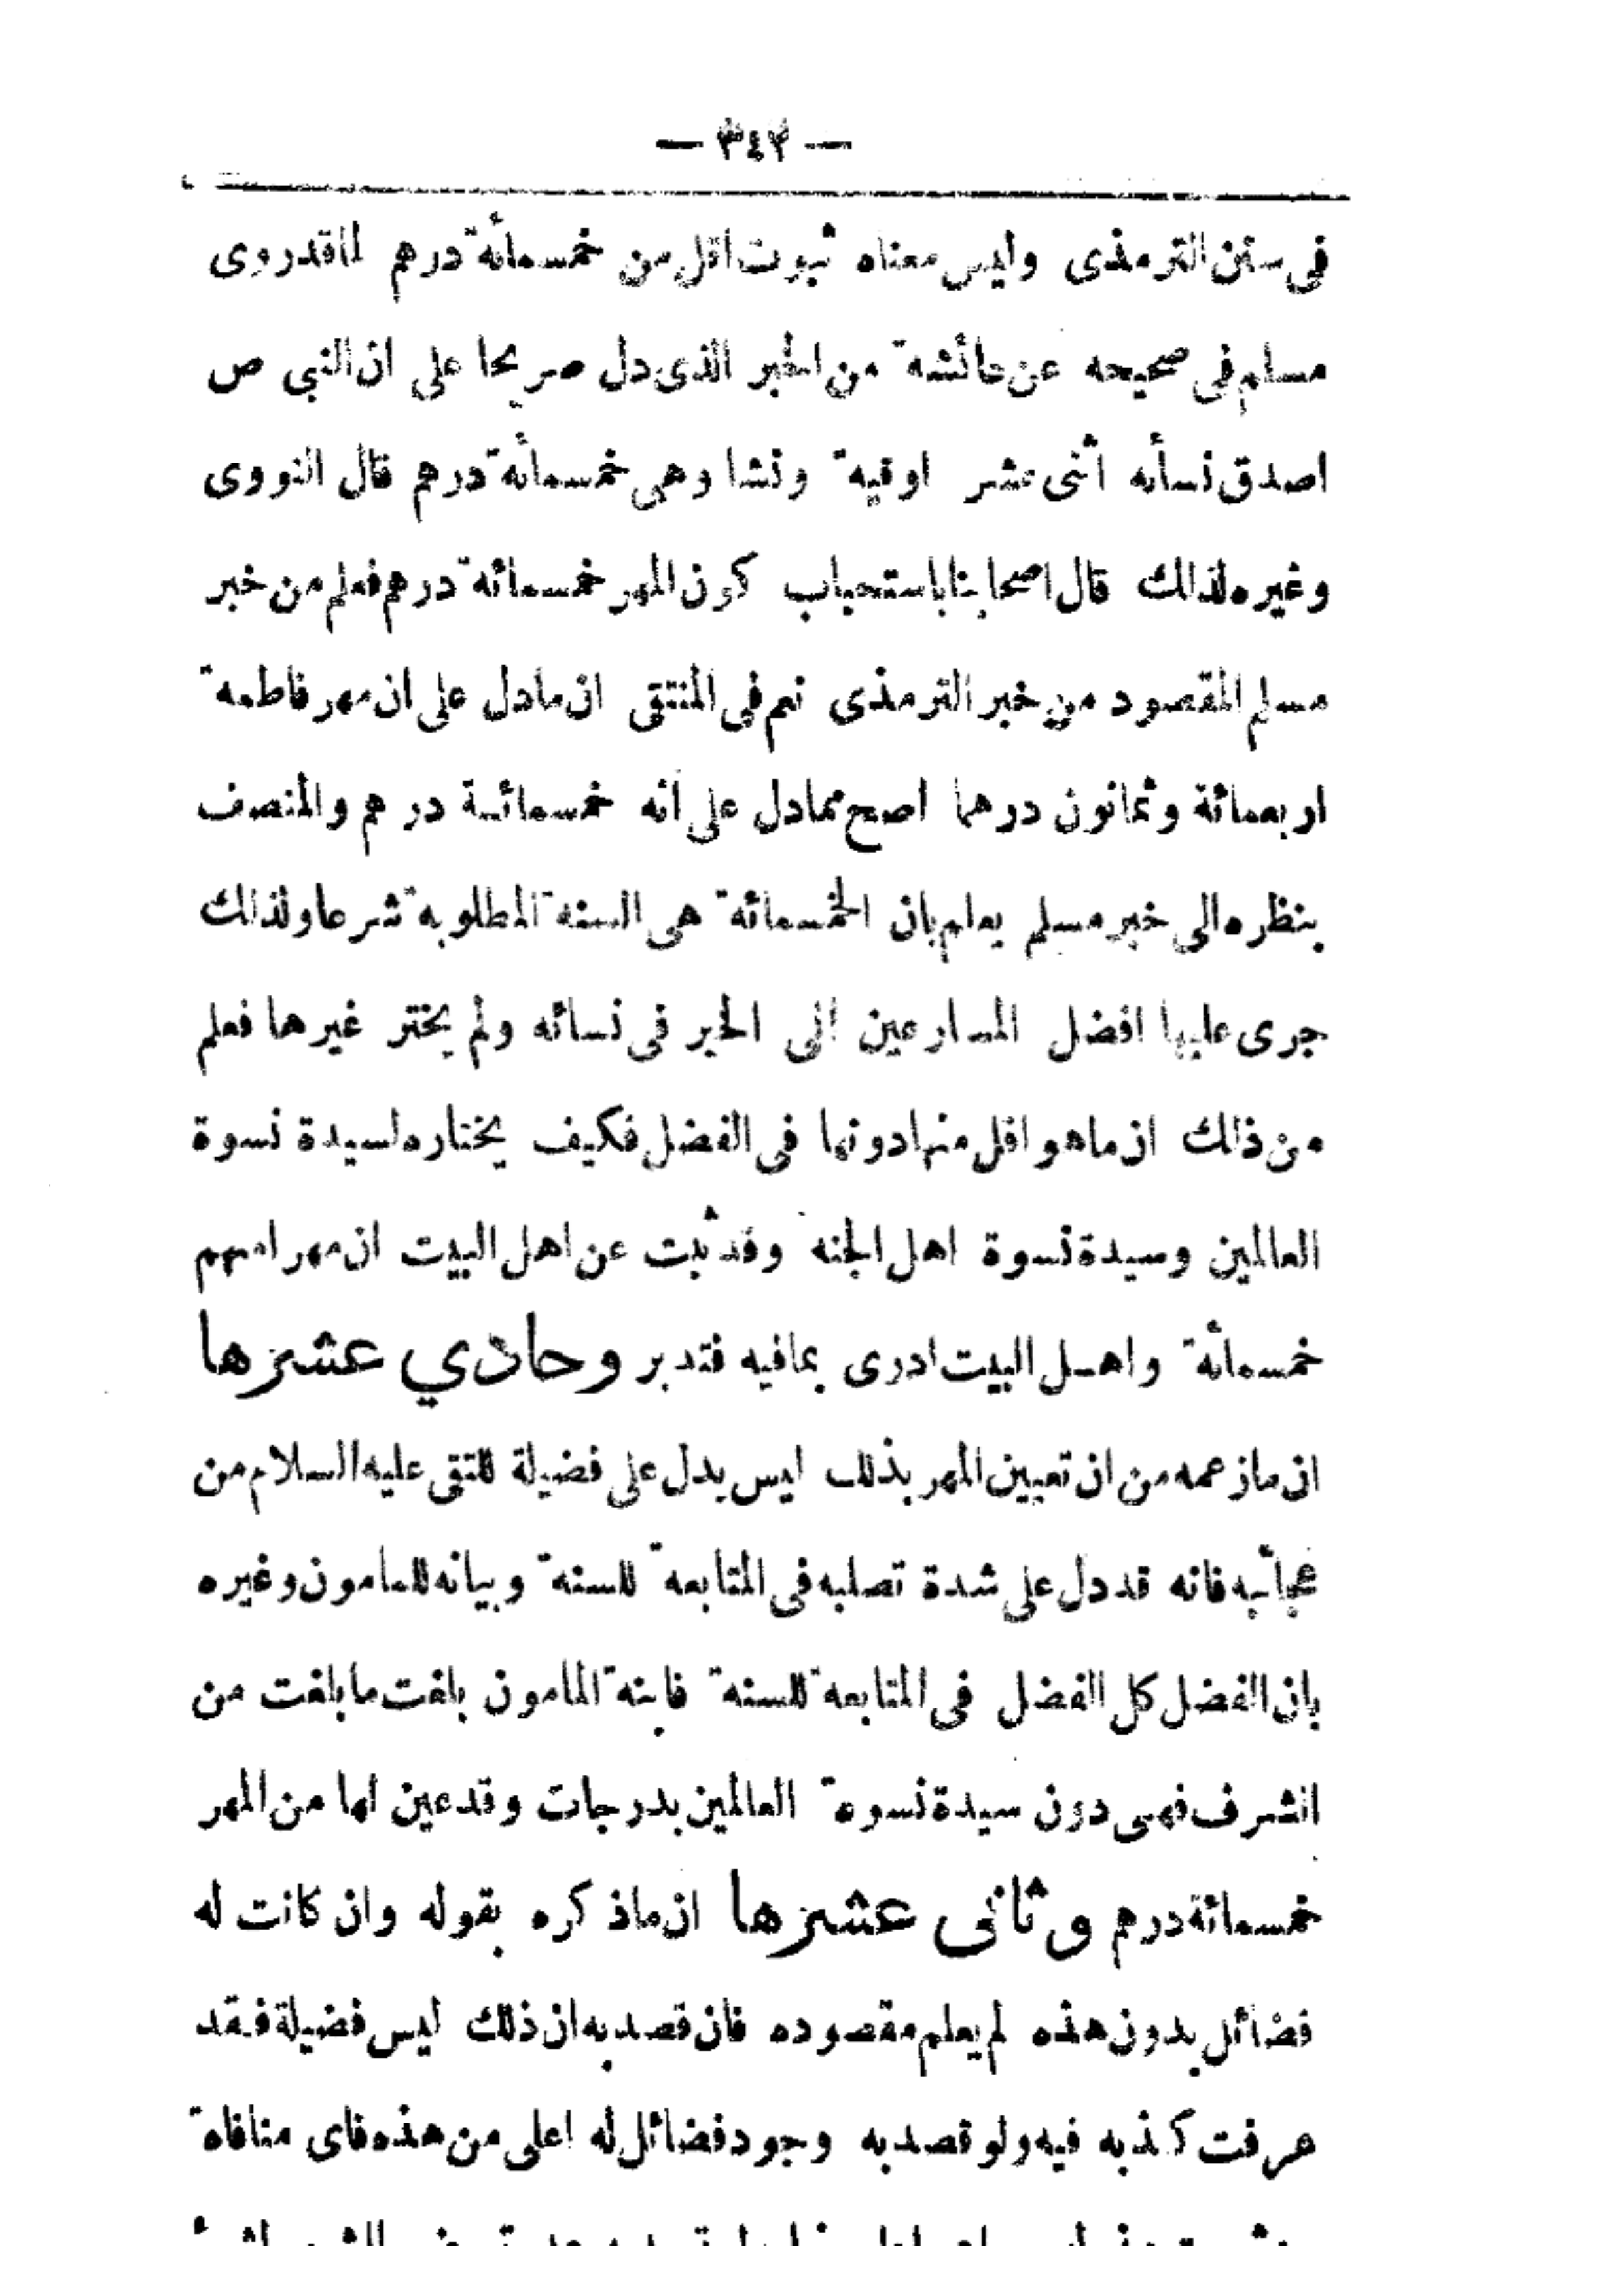 — ٣٤٢ —
فى سنن الترمذى وليس معناه ثبوت اقل من خمسمأة درهم لماقدروى
مسلم فى صحيحه عن عائشه من الخبر الذى دل صريحا على ان النبى ص
اصدق نسأه اثنى عشر اوقيه ونشا وهى خمسمأة درهم قال النووى
وغيره لذالك قال اصحابنا باستحباب كون المهر خمسمائة درهم فعلم من خبر
مسلم المقصود من خبر الترمذى نعم فى المنتقى ان مادل على ان مهر فاطمه
اربعمائة وثمانون درهما اصح ممادل على انه خمسمائة درهم والمنصف
بنظره الى خبر مسلم يعلم بان الخمسمائة هى السنة المطلوبة شرعا ولذالك
جرى عليها افضل المسارعين الى الخير فى نسائه ولم يختر غيرها فعلم
من ذالك ان ماهو اقل منها دونها فى الفضل فكيف يختاره لسيدة نسوة
العالمين وسيدة نسوة اهل الجنه وقد ثبت عن اهل البيت ان مهر امهم
خمسمأة واهل البيت ادرى بمافيه فتدبر وحادي عشرها
ان مازعمه من ان تعيين المهر بذلك ليس يدل على فضيلة للتقى عليه السلام من
عجائبه فانه قد دل على شدة تصلبه فى المتابعة للسنة وبيانه للمامون وغيره
بان الفضل كل الفضل فى المتابعة للسنة فابنة المامون بلغت ما بلغت من
الشرف فهى دون سيدة نسوة العالمين بدرجات وقد عين لها من المهر
خمسمائة درهم وثانى عشرها ان ماذكره بقوله وان كانت له
فضائل بدون هذه لم يعلم مقصوده فان قصد به ان ذلك ليس فضيلة فقد
عرفت كذبه فيه ولو قصد به وجود فضائل له اعلى من هذه فاى منافاة